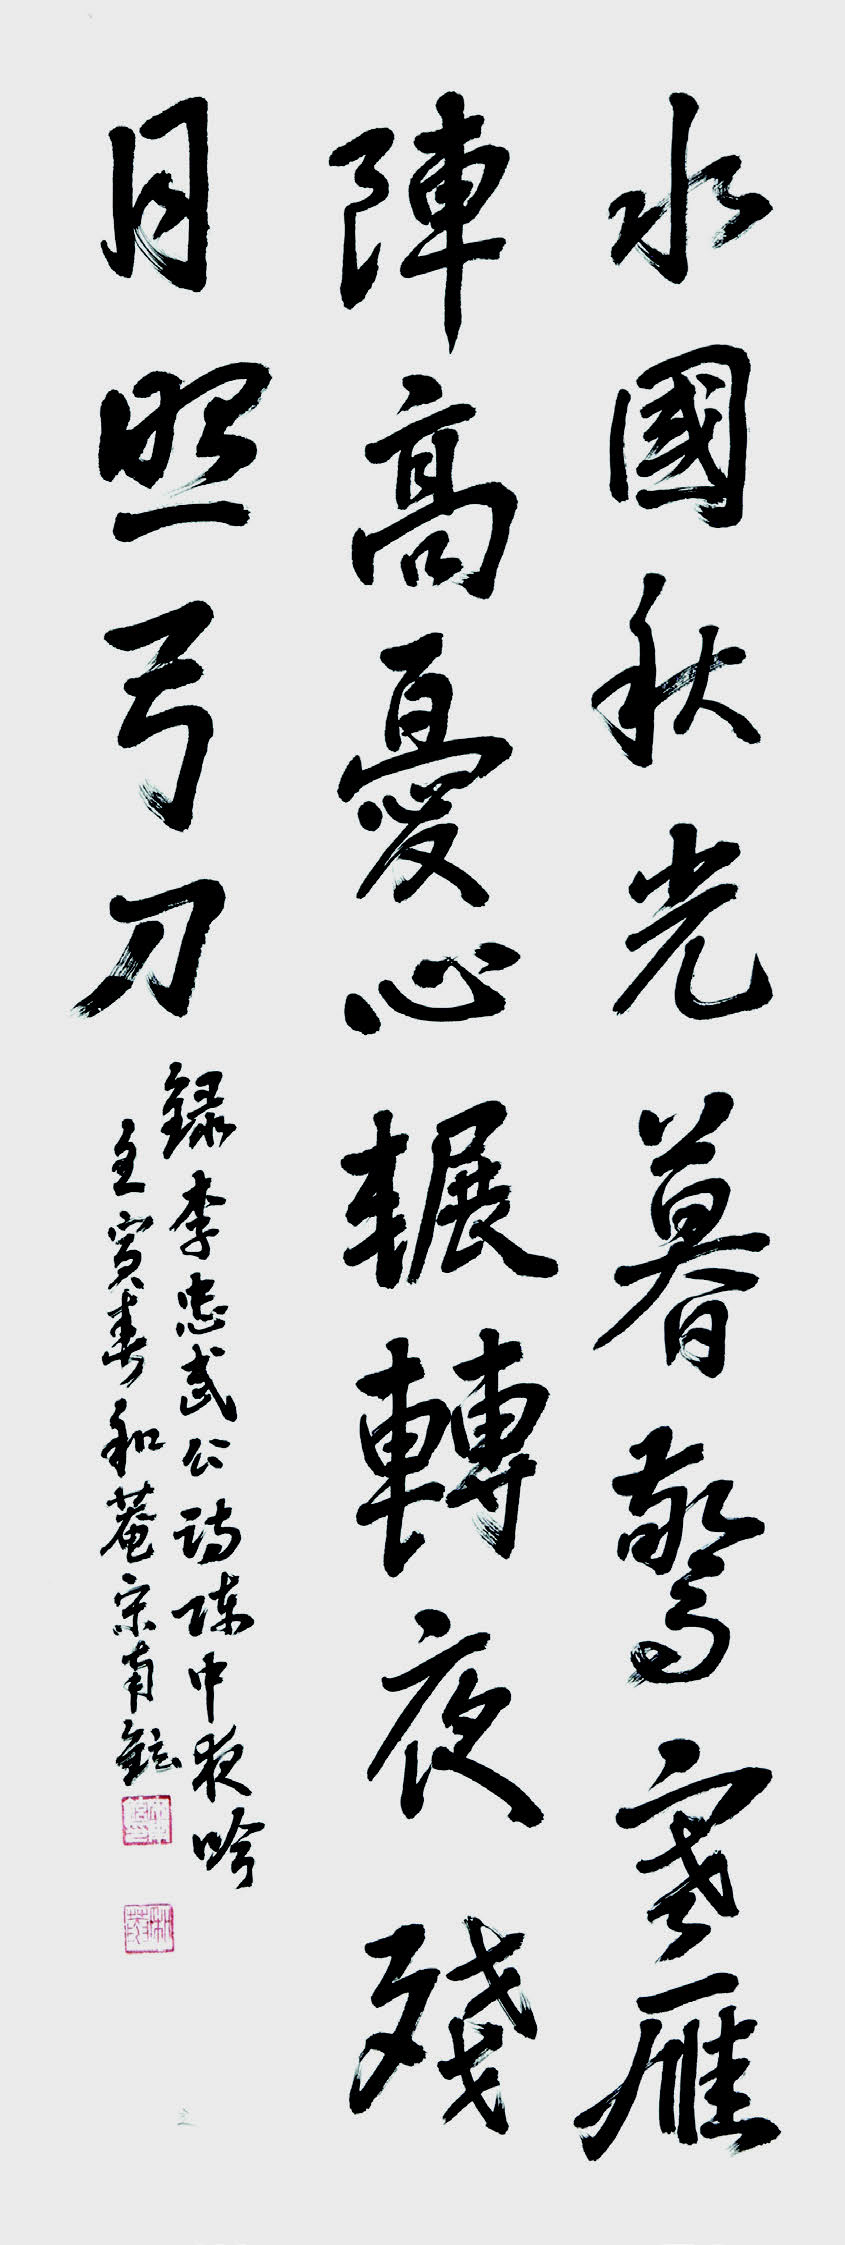 水國秋光暮驚寒雁
陣高憂心輾轉夜殘
月照弓刀
錄李忠武公詩陣中夜吟
壬寅春和菴宋南鉉